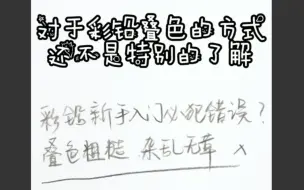 对于彩铅叠色的方式
还不是特别的了解
彩铅新手入门必犯错误？
叠色粗糙 杂乱无章 x